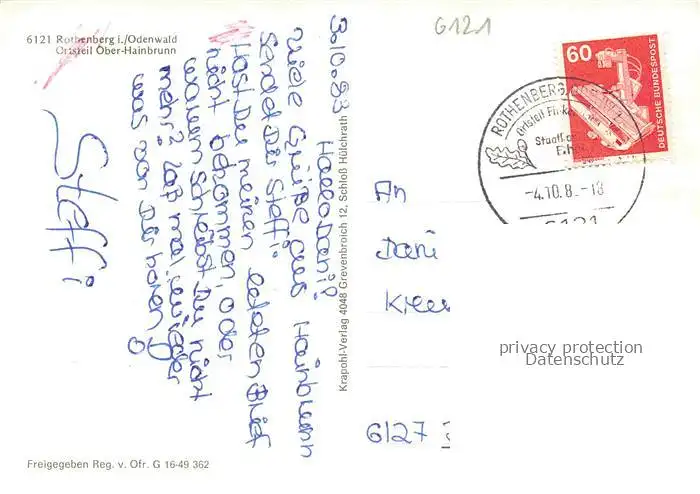 6121 Rothenberg i./Odenwald
Ortsteil Ober-Hainbrunn
6121
60
DEUTSCHE BUNDESPOST
ROTHENBERG
Ortsteil
Staatl.
-4.10.8 -18
6121
3.10.83
Hallo Dani!
Viele Grüße aus Hainbrunn
sendet Dir Steffi.
Hast Du meinen letzten Brief
nicht bekommen, oder
warum schreibst Du nicht
mehr? Laß mal wieder
was von Dir hören
Steffi
Krapohl-Verlag 4048 Grevenbroich 12, Schloß Hülchrath
An
Dani
6127
privacy protection
Datenschutz
Freigegeben Reg. v. Ofr. G 16-49 362